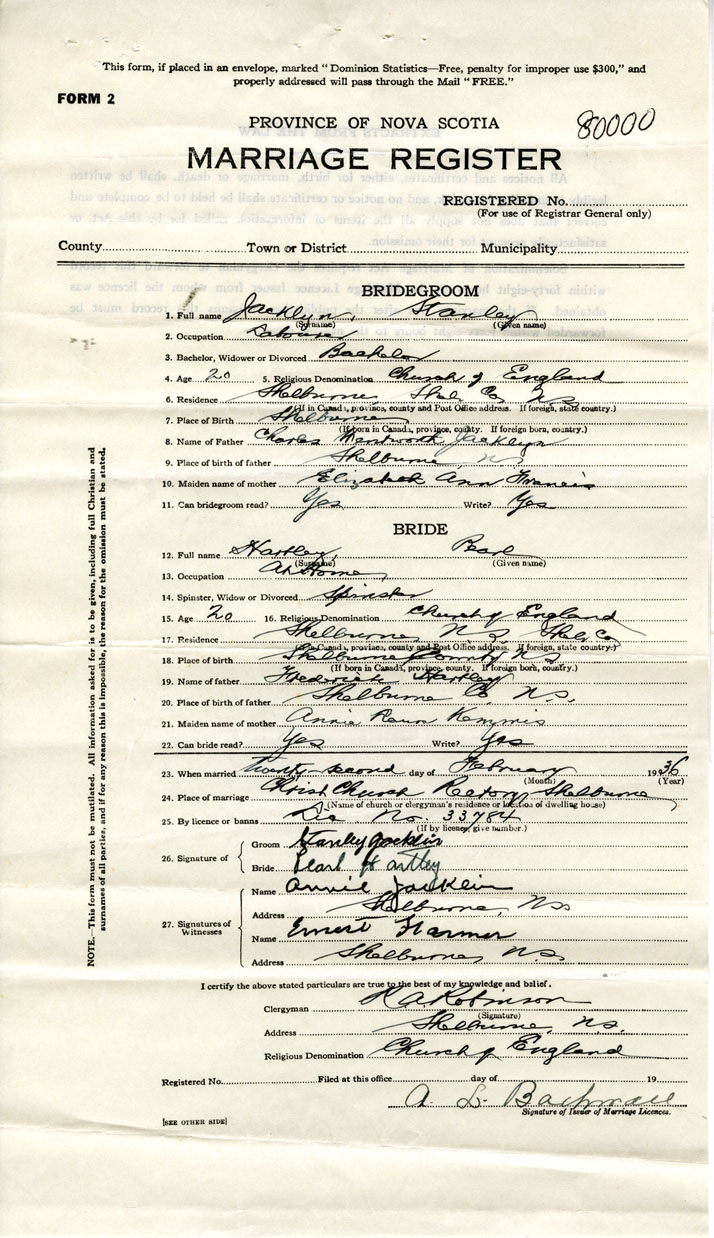 This form, if placed in an envelope, marked "Dominion Statistics—Free, penalty for improper use $300," and
properly addressed will pass through the Mail "FREE."
FORM 2
PROVINCE OF NOVA SCOTIA
80000
MARRIAGE REGISTER
REGISTERED No.
(For use of Registrar General only)
County Town or District Municipality
BRIDEGROOM
1. Full name Jacklyn, Stanley
(Surname) (Given name)
2. Occupation Labourer
3. Bachelor, Widower or Divorced Bachelor
4. Age 20 5. Religious Denomination Church of England
6. Residence Shelburne, Shel. Co. N.S.
(If in Canada, province, county and Post Office address. If foreign, state country.)
7. Place of Birth Shelburne
(If born in Canada, province, county. If foreign born, country.)
8. Name of Father Charles Wentworth Jacklyn
9. Place of birth of father Shelburne, N.S.
10. Maiden name of mother Elizabeth Ann Francis
11. Can bridegroom read? Yes Write? Yes
BRIDE
12. Full name Hartley, Pearl
(Surname) (Given name)
13. Occupation At Home
14. Spinster, Widow or Divorced Spinster
15. Age 20 16. Religious Denomination Church of England
17. Residence Shelburne N.S. Shel. Co.
(If in Canada, province, county and Post Office address. If foreign, state country.)
18. Place of birth Shelburne County N.S.
(If born in Canada, province, county. If foreign born, country.)
19. Name of father Frederick Hartley
20. Place of birth of father Shelburne Co. N.S.
21. Maiden name of mother Annie Kemmis
22. Can bride read? Yes Write? Yes
23. When married Twenty-second day of February 1936
(Month) (Year)
24. Place of marriage Christ Church Rectory, Shelburne
(Name of church or clergyman's residence or location of dwelling house)
25. By licence or banns Lic No. 33784
(If by licence, give number.)
26. Signature of
Groom Stanley Jacklin
Bride Pearl Hartley
27. Signatures of Witnesses
Name Annie Jacklin
Address Shelburne, N.S.
Name Ernest Harmer
Address Shelburne, N.S.
I certify the above stated particulars are true to the best of my knowledge and belief.
Clergyman H A Robinson
(Signature)
Address Shelburne, N.S.
Religious Denomination Church of England
Registered No. Filed at this office day of 19
A. L.
Signature of Issuer of Marriage Licences.
[SEE OTHER SIDE]
NOTE.—This form must not be mutilated. All information asked for is to be given, including full Christian and
surnames of all parties, and if for any reason this is impossible, the reason for the omission must be stated.